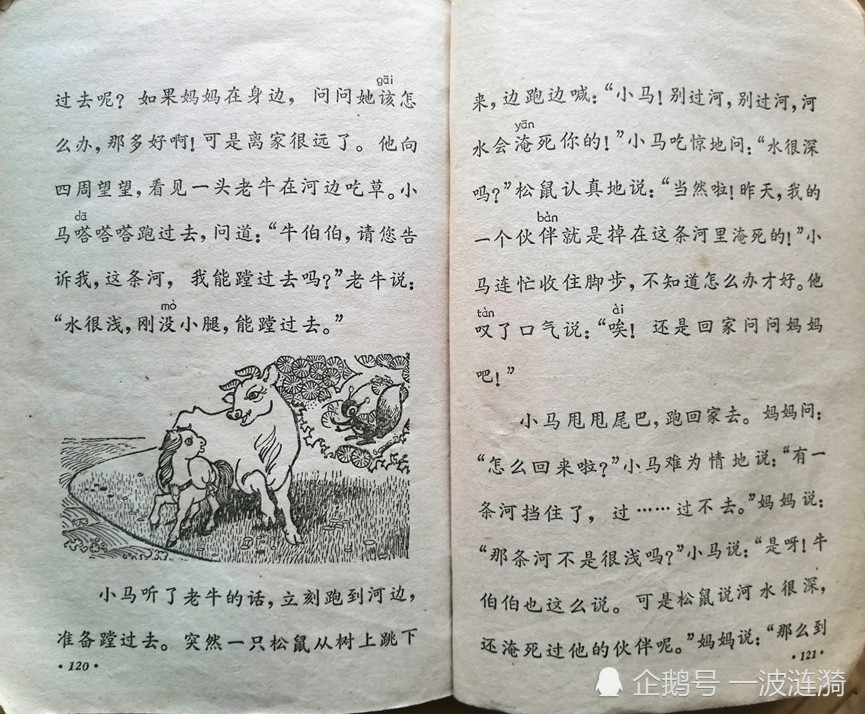 gāi
过去呢？如果妈妈在身边，问问她该怎
么办，那多好啊！可是离家很远了。他向
四周望望，看见一头老牛在河边吃草。小
dā
马嗒嗒嗒跑过去，问道：“牛伯伯，请您告
诉我，这条河，我能蹚过去吗？”老牛说：
mò
“水很浅，刚没小腿，能蹚过去。”
小马听了老牛的话，立刻跑到河边，
准备蹚过去。突然一只松鼠从树上跳下
·120·
来，边跑边喊：“小马！别过河，别过河，河
yān
水会淹死你的！”小马吃惊地问：“水很深
吗？”松鼠认真地说：“当然啦！昨天，我的
bàn
一个伙伴就是掉在这条河里淹死的！”小
马连忙收住脚步，不知道怎么办才好。他
tàn ài
叹了口气说：“唉！还是回家问问妈妈
吧！”
小马甩甩尾巴，跑回家去。妈妈问：
“怎么回来啦？”小马难为情地说：“有一
条河挡住了，过……过不去。”妈妈说：
“那条河不是很浅吗？”小马说：“是呀！牛
伯伯也这么说。可是松鼠说河水很深，
还淹死过他的伙伴呢。”妈妈说：“那么到
·121·
企鹅号 一波涟漪